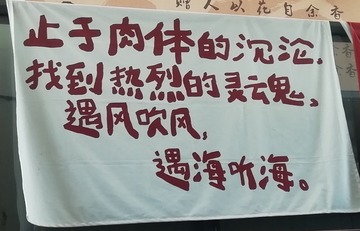 赠人以花自余香
止于肉体的沉沦,
找到热烈的灵魂,
遇风吹风,
遇海听海。